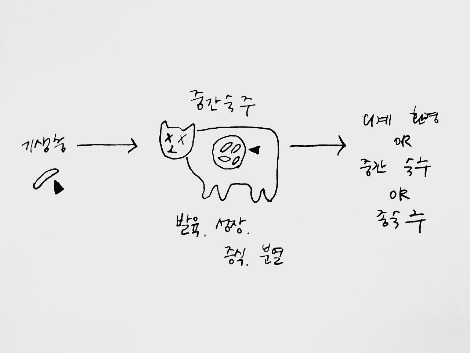 기생충
중간숙주
발육, 성장,
증식, 분열
외계 환경
OR
중간 숙주
OR
종숙주